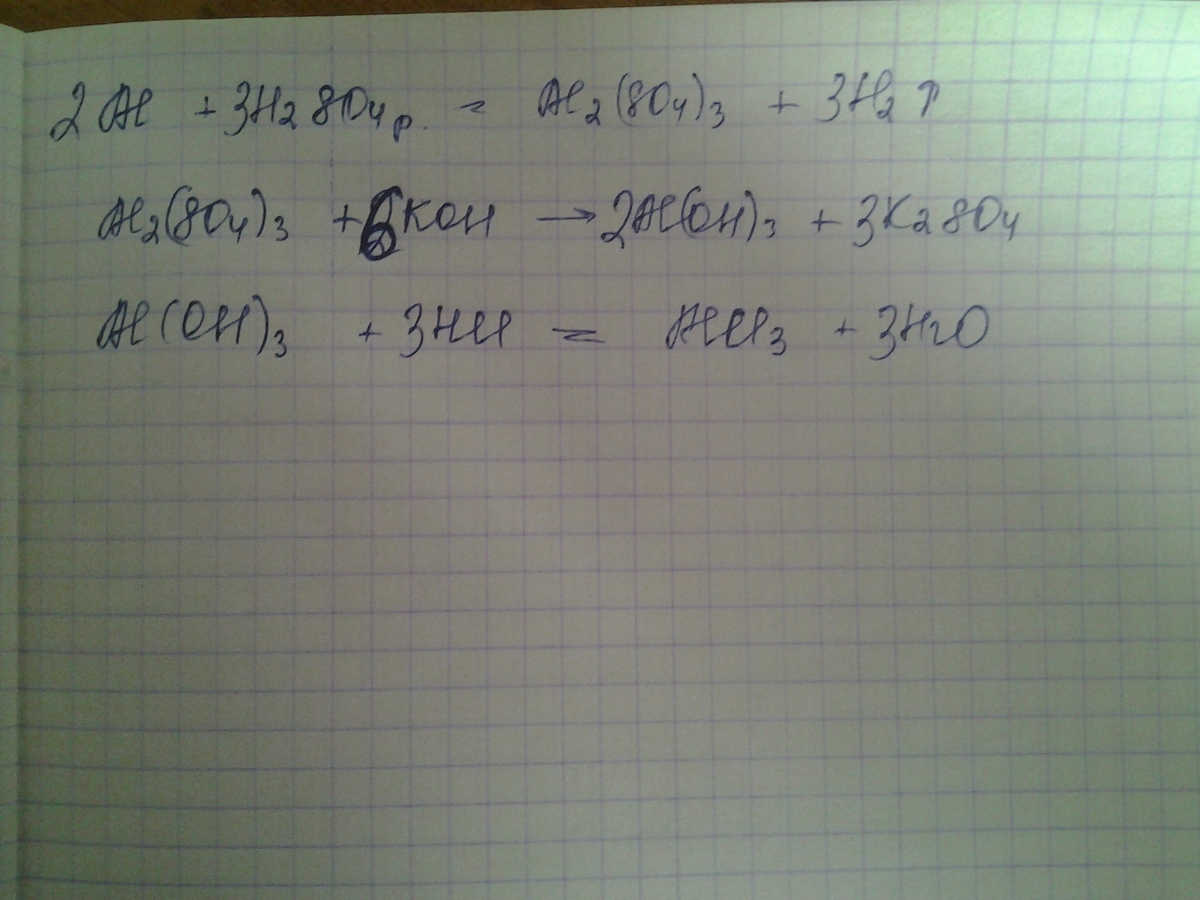 2Al + 3H2SO4 р. = Al2(SO4)3 + 3H2↑
Al2(SO4)3 + 6KOH → 2Al(OH)3 + 3K2SO4
Al(OH)3 + 3HCl = AlCl3 + 3H2O